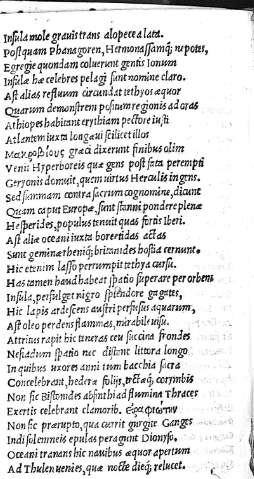 Insula mole grauis trans alopecea lata.
Postquam Phanagoren, Hermonassamq; nepotes,
Egregie quondam coluerunt gentis Ionum
Insulæ hæ celebres pelagi sunt nomine claro.
Ast alias refluum circundat tethyos æquor
Quarum demonstrem positum regionis ad oras
Æthiopes habitant erythiam pectore iusti
Atlantem iuxta longæui scilicet illos
græci dixerunt finibus olim
Venit Hyperboreis quæ gens post fata perempti
Geryonis domuit, quem uirtus Herculis ingens.
Sed summam contra sacrum cognomine, dicunt
Quam caput Europæ, sunt stanni pondere plenæ
Hesperides, populus tenuit quas fortis Iberi.
Ast aliæ oceani iuxta boreotidas actas
Sunt geminæ rhenique; britanides hostia cernunt.
Hic etenim lasso perrumpit tethya cursu.
Has tamen haud habeat spatio superare per orbem
Insula, persulget nigro splendore gagates,
Hic lapis ardescens austri perfusus aquarum,
Ast oleo perdens flammas, mirabile uisu.
Attritus rapit hic teneras ceu succina frondes
Nesiadum spatio nec distant littora longo
In quibus uxores amni tum bacchia sacra
Concelebrant, hederæ folijs, tectæq; corymbis
Non sic Bistonides absinthi ad flumina Thraces
Exertis celebrant clamorib.
Non sic prærupto, qua currit gurgite Ganges
Indi solemneis epulas peragunt Dionyso.
Oceani tranans hic nauibus æquor apertum
Ad Thulen uenies, quæ nocte dieq; relucet.